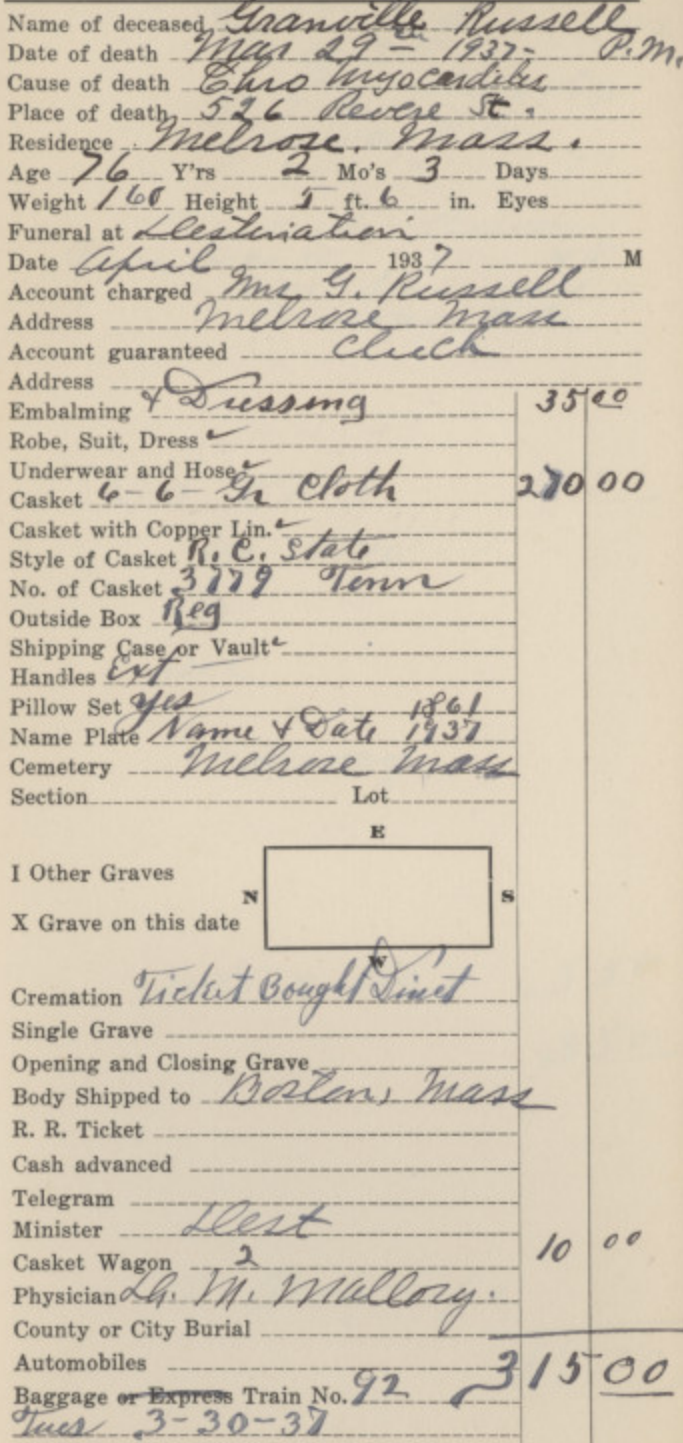 Name of deceased Granville Russell
Date of death Mar 29 - 1937 - P.M.
Cause of death Chro Myocarditis
Place of death 526 Revere St.
Residence Melrose, Mass.
Age 76 Y'rs 2 Mo's 3 Days
Weight 160 Height 5 ft. 6 in. Eyes
Funeral at Destination
Date April 1937 M
Account charged Mrs G. Russell
Address Melrose Mass
Account guaranteed Check
Address
Embalming & Dressing 35 00
Robe, Suit, Dress
Underwear and Hose
Casket 6-6- Gr Cloth 270 00
Casket with Copper Lin.
Style of Casket R.C. State
No. of Casket 3779 Tenn
Outside Box Reg
Shipping Case or Vault
Handles Ext
Pillow Set yes 1861
Name Plate Name & Date 1937
Cemetery Melrose Mass
Section Lot
E
I Other Graves
N S
X Grave on this date
W
Cremation Ticket Bought Direct
Single Grave
Opening and Closing Grave
Body Shipped to Boston, Mass
R. R. Ticket
Cash advanced
Telegram
Minister Dest
Casket Wagon 2 10 00
Physician M. Mallory.
County or City Burial
Automobiles 315 00
Baggage or Express Train No. 92
Tues 3-30-37